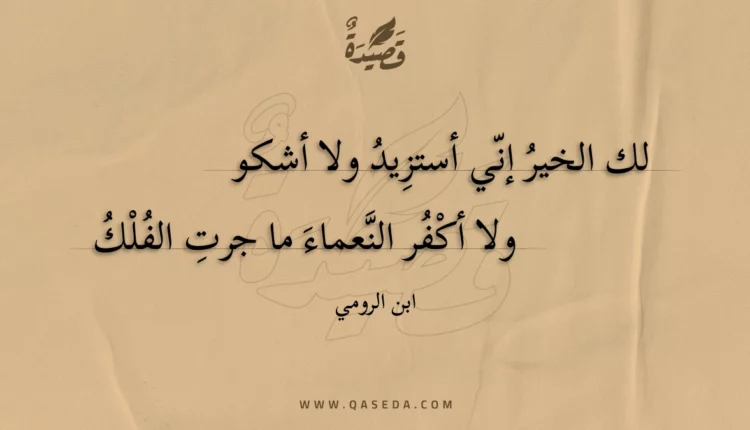 قَصِيدَةٌ
لك الخيرُ إنّي أستزِيدُ ولا أشكو
ولا أكْفُر النَّعماءَ ما جرتِ الفُلْكُ
ابن الرومي
WWW.QASEDA.COM